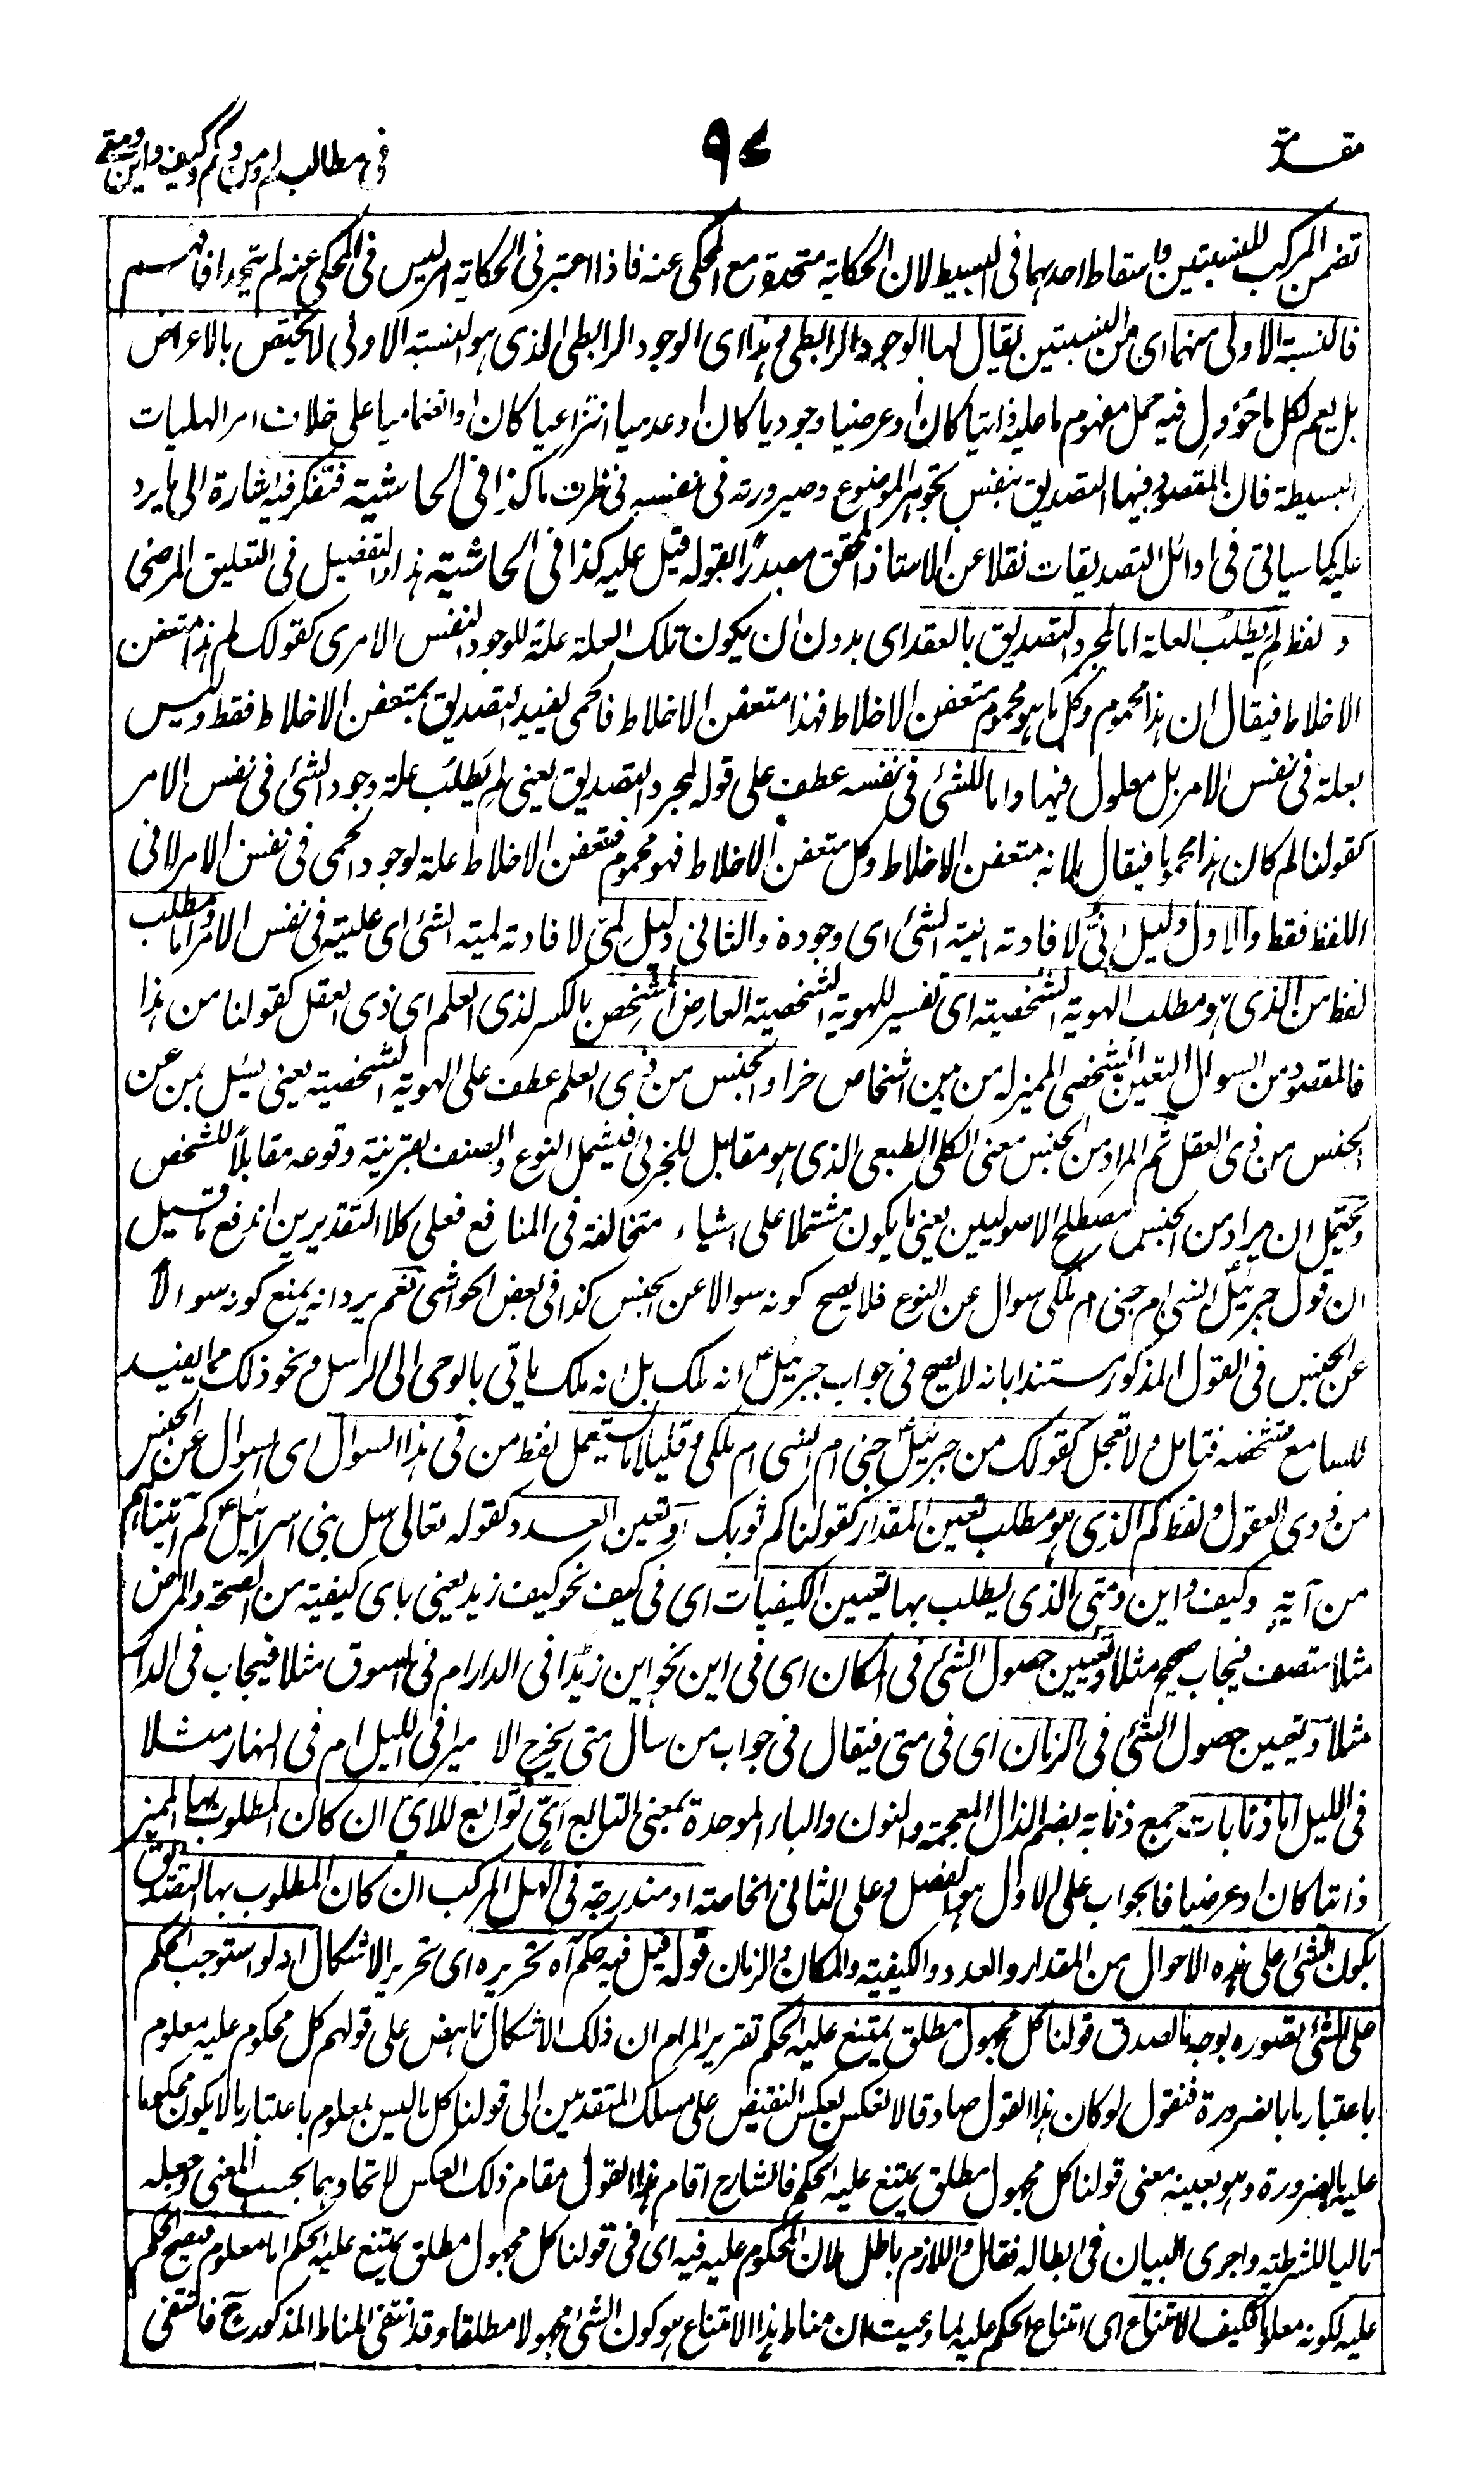 مقدمة
٩٧
فى مطالب لم ومن وكم وكيف واين ومتى
تضمن المركب للنسبتين واسقاط احدهما فى البسيط لان الحكاية متحدة مع المحكى عنه فاذا اعتبر فى الحكاية امر ليس فى المحكى عنه لم يتحدا فافهم
فالنسبة الاولى منهما اى من النسبتين يقال لها الوجود الرابطى وهذا اى الوجود الرابطى الذى هو النسبة الاولى لا يختص بالاعراض
بل يعم لكل ما حُوول فيه حمل مفهوم ما عليه ذاتيا كان او عرضيا وجوديا كان او عدميا انتزاعيا كان او انضماميا على خلاف امر الهليات
البسيطة فان المقصود فيها التصديق بنفس تجوهر الموضوع وصيرورته فى نفسه فى ظرف ما كذا فى الحاشية فتفكر فيه اشارة الى ما يرد
عليه كما سياتى فى اوائل التصديقات نقلا عن الاستاذ المحقق مصدرًا بقوله قيل عليه كذا فى الحاشية هذا والتفصيل فى التعليق المرضى
ولفظ لِمَ يطلب العلة اما لمجرد التصديق بالعقد اى بدون ان يكون تلك العلة علة للوجود النفس الامرى كقولك لم هذا متعفن
الاخلاط فيقال ان هذا محموم وكل ما هو محموم متعفن الاخلاط فهذا متعفن الاخلاط فالحمى يفيد التصديق بمتعفن الاخلاط فقط وليس
بعلة فى نفس الامر بل معلول فيها واما للشئ فى نفسه عطف على قوله لمجرد التصديق يعنى لِمَ يطلب علة وجود الشئ فى نفس الامر
كقولنا لم كان هذا محموما فيقال لانه متعفن الاخلاط وكل متعفن الاخلاط فهو محموم فتعفن الاخلاط علة لوجود الحمى فى نفس الامر لا فى
اللفظ فقط والاول دليل اِنِّىٌّ لافادته انية الشئ اى وجوده والثانى دليل لِمِّىٌّ لافادته لمية الشئ اى عليته فى نفس الامر واما مطلب
لفظ من الذى هو مطلب الهوية الشخصية اى تفسير للهوية الشخصية العارض المشخِّص بالكسر لذى العلم اى ذى العقل كقولنا من هذا
فالمقصود من السوال التعين الشخصى المميز له من بين اشخاص خر او الجنس من ذى العلم عطف على الهوية الشخصية يعنى يسئل بمن عن
الجنس من ذى العقل ثم المراد من الجنس معنى الكلى الطبعى الذى هو مقابل للجزئى فيشمل النوع والصنف بقرينة وقوعه مقابلاً للشخص
ويحتمل ان يراد من الجنس مصطلح الاصوليين يعنى ما يكون مشتملا على اشياء متخالفة فى المنافع فعلى كلا التقديرين اندفع ما قيل
ان قول جبرئيلؑ انسى ام جنى ام ملكى سوال عن النوع فلا يصح كونه سوالا عن الجنس كذا فى بعض الحواشى نعم يرد انه يمنع كونه سوالاً
عن الجنس فى القول المذكور مستندا بانه لا يصح فى جواب جبرئيلؑ انه ملك بل انه ملك ياتى بالوحى الى الرسل ونحو ذلك مما يفيد
للسامع تشخصه فتامل ولا تعجل كقولك من جبرئيلؑ جنى ام انسى ام ملكى وقليلا ما يستعمل لفظ من فى هذا السوال اى السوال عن الجنس
من ذوى العقول ولفظ كم الذى هو مطلب تعيين المقدار كقولنا كم ثوبك او تعين العدد كقوله تعالى سل بنى اسرائيلؑ كم آتيناهم
من آيةٍ وكيف واين ومتى الذى يطلب بها تعيين الكيفيات اى فى كيف نحو كيف زيد يعنى باى كيفية من الصحة والمرض
مثلا متصف فيجاب صحيح مثلا وتعيين حصول الشئ فى المكان اى فى اين نحو اين زيدٌ افى الدار ام فى السوق مثلا فيجاب فى الدار
مثلا وتعيين حصول الشئ فى الزمان اى فى متى فيقال فى جواب من سأل متى يخرج الامير افى الليل ام فى النهار مثلا
فى الليل اما ذنابات جمع ذنابة بضم الذال المعجمة والنون والباء الموحدة بمعنى التابع اى توابع للاى ان كان المطلوب بها المميز
ذاتيا كان او عرضيا فالجواب على الاول هو الفصل وعلى الثانى الخاصة او مندرجة فى الهل المركب ان كان المطلوب بها التصديق
بكون الشئ على هذه الاحوال من المقدار والعدد والكيفية والمكان والزمان قوله قيل فيه حكم آه تحريره اى تحرير الاشكال انه لو استوجب الحكم
على الشئ بتصوره بوجه ما لصدق قولنا كل مجهول مطلق يمتنع عليه الحكم تقرير المرام ان ذلك الاشكال ناهض على قولهم كل محكوم عليه معلوم
باعتبار ما بالضرورة فنقول لو كان هذا القول صادقا لانعكس بعكس النقيض على مسلك المتقدمين الى قولنا كل ما ليس بمعلوم باعتبار ما لا يكون محكوما
عليه بالضرورة وهو بعينه معنى قولنا كل مجهول مطلق يمتنع عليه الحكم فالشارح اقام هذا القول مقام ذلك العكس لاتحادهما بحسب المعنى وجعله
تاليا للشرطية واجرى البيان فى ابطاله فقال واللازم باطل لان المحكوم عليه فيه اى فى قولنا كل مجهول مطلق يمتنع عليه الحكم اما معلوم فيصح الحكم
عليه لكونه معلوما فكيف الامتناع اى امتناع الحكم عليه لما وعيت ان مناط هذا الامتناع هو كون الشئ مجهولا مطلقا وقد انتفى المناط المذكور ح فانتفى